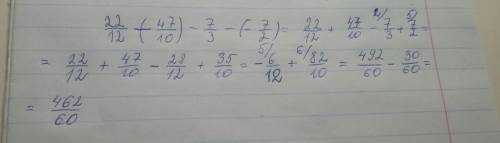 22/12 - (-47/10) - 7/3 - (-7/2) = 22/12 + 47/10 - 4/ 7/3 + 5/ 7/2 =
= 22/12 + 47/10 - 28/12 + 35/10 = 5/ -6/12 + 6/ 82/10 = 492/60 - 30/60 =
= 462/60